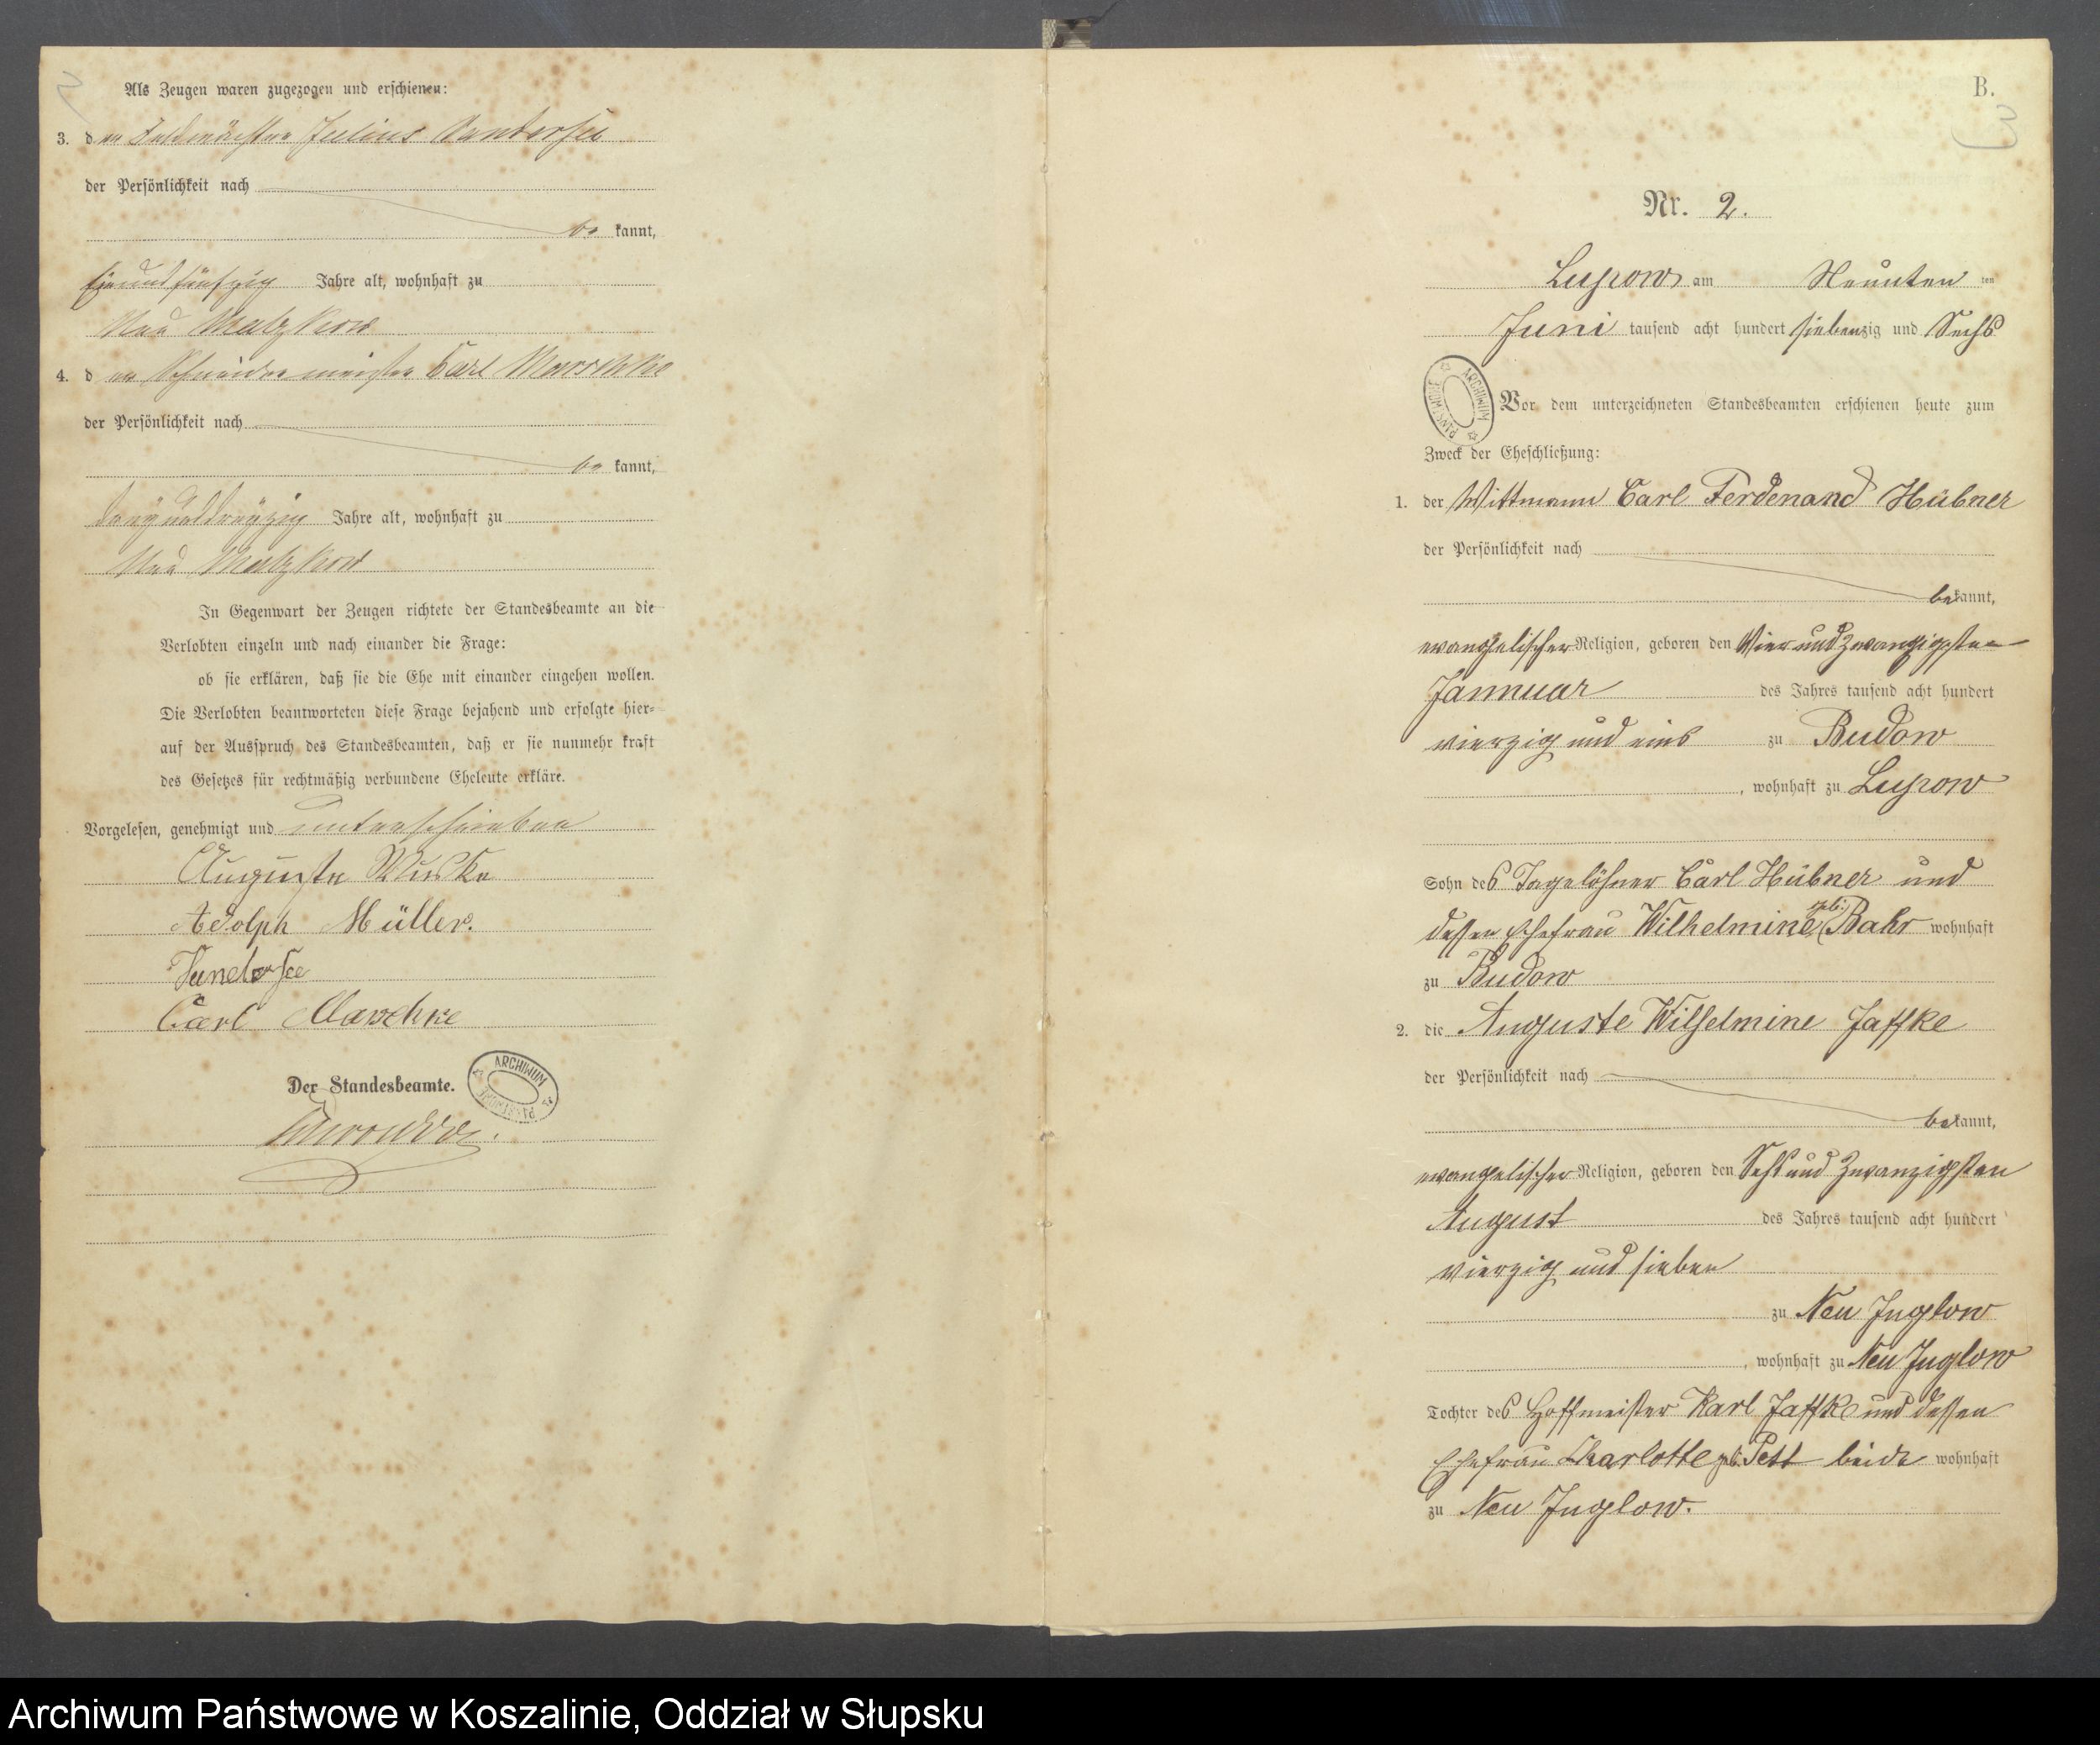 Als Zeugen waren zugezogen und erschienen:
3. der Julius
der Persönlichkeit nach
be kannt,
einundfünfzig Jahre alt, wohnhaft zu
Neu Malzkow
4. der Schneidermeister Carl Marschke
der Persönlichkeit nach
be kannt,
dreyunddreyzig Jahre alt, wohnhaft zu
Neu Malzkow
In Gegenwart der Zeugen richtete der Standesbeamte an die
Verlobten einzeln und nach einander die Frage:
ob sie erklären, daß sie die Ehe mit einander eingehen wollen.
Die Verlobten beantworteten diese Frage bejahend und erfolgte hier-
auf der Ausspruch des Standesbeamten, daß er sie nunmehr kraft
des Gesetzes für rechtmäßig verbundene Eheleute erkläre.
Vorgelesen, genehmigt und unterschrieben
Auguste
Adolph Müller.
Carl Maschke
Der Standesbeamte.
ARCHIWUM PAŃSTWOWE
B.
3
Nr. 2.
Lupow am Neunten ten
Juni tausend acht hundert siebenzig und Sechs
ARCHIWUM PAŃSTWOWE
Vor dem unterzeichneten Standesbeamten erschienen heute zum
Zweck der Eheschließung:
1. der Wittmann Carl Ferdenand Hübner
der Persönlichkeit nach
bekannt,
evangelischer Religion, geboren den Vier und zwanzigsten
Jannuar des Jahres tausend acht hundert
vierzig und eins zu Budow
, wohnhaft zu Lupow
Sohn des Tagelöhner Carl Hübner und
dessen Ehefrau Wilhelmine geb: Bahr wohnhaft
zu Budow
2. die Auguste Wilhelmine Jaffke
der Persönlichkeit nach
bekannt,
evangelischer Religion, geboren den Sechs und Zwanzigsten
August des Jahres tausend acht hundert
vierzig und sieben
zu Neu Juglow
, wohnhaft zu Neu Juglow
Tochter des Hoffmeister Karl Jaffke und dessen
Ehefrau Charlotte geb. Pett beide wohnhaft
zu Neu Juglow.
Archiwum Państwowe w Koszalinie, Oddział w Słupsku